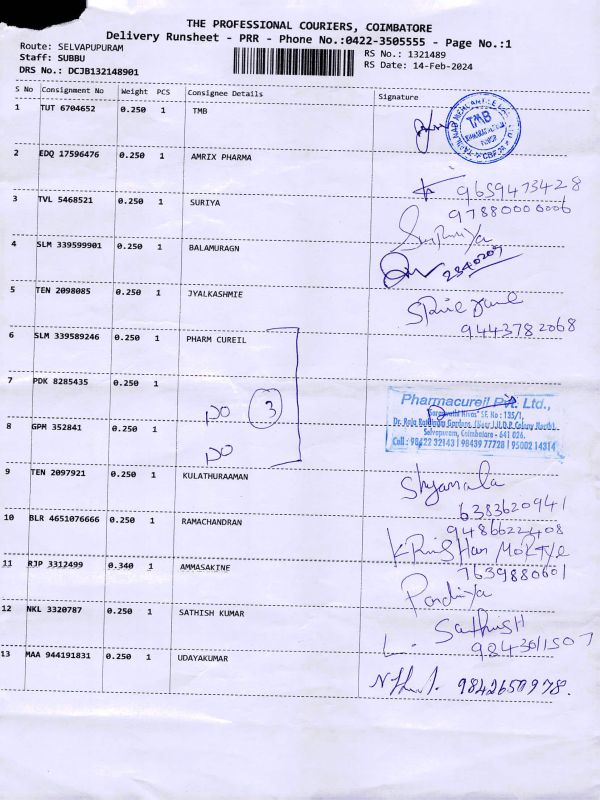 THE PROFESSIONAL COURIERS, COIMBATORE
Delivery Runsheet - PRR - Phone No.:0422-3505555 - Page No.:1
Route: SELVAPUPURAM
RS No.: 1321489
Staff: SUBBU
RS Date: 14-Feb-2024
DRS No.: DCJB132148901
S No Consignment No Weight PCS Consignee Details Signature
1 TUT 6704652 0.250 1 TMB
TMB
2 EDQ 17596476 0.250 1 AMRIX PHARMA
9659473428
3 TVL 5468521 0.250 1 SURIYA
97880000006
Suriya
4 SLM 339599901 0.250 1 BALAMURAGN
2340209
5 TEN 2098085 0.250 1 JYALKASHMIE
9443782068
6 SLM 339589246 0.250 1 PHARM CUREIL
7 PDK 8285435 0.250 1
DO 3
Pharmacureil Pvt. Ltd.,
SF. No : 135/1,
8 GPM 352841 0.250 1
Selvapuram, Coimbatore - 641 026.
Cell : 98422 32143 | 98439 77728 | 95002 14314
DO
9 TEN 2097921 0.250 1 KULATHURAAMAN
Shyamala
6383620941
10 BLR 4651076666 0.250 1 RAMACHANDRAN
9486622408
11 RJP 3312499 0.340 1 AMMASAKINE
7639880601
Pandiya
12 NKL 3320787 0.250 1 SATHISH KUMAR
Sathish
9843011507
13 MAA 944191831 0.250 1 UDAYAKUMAR
9842650978.